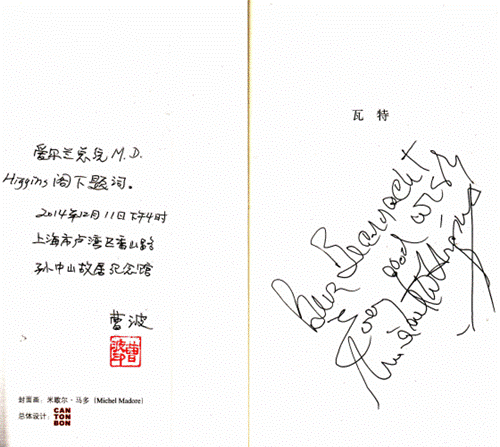 爱尔兰总统 M.D.
Higgins 阁下题词。
2014年12月11日下午4时
上海市卢湾区香山路
孙中山故居纪念馆
曹波
封面画：米歇尔·马多 (Michel Madore)
总体设计：
CAN
TON
BON
瓦 特
Beckett
Every good wish